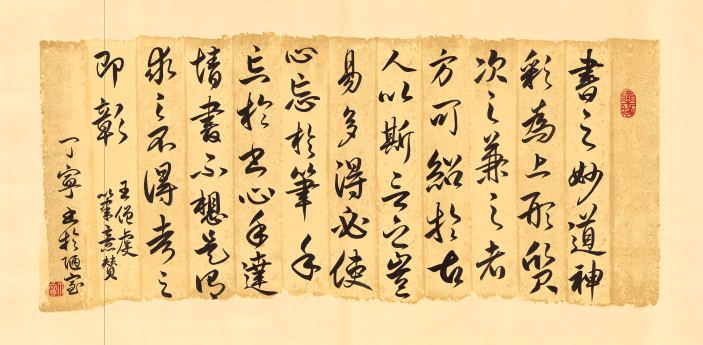 書之妙道神
彩為上形質
次之兼之者
方可紹於古
人以斯言之豈
易多得必使
心忘於筆手
忘於书心手達
情書不想是謂
求之不得考之
即彰
王僧虔
筆意贊
丁寧书於陋室